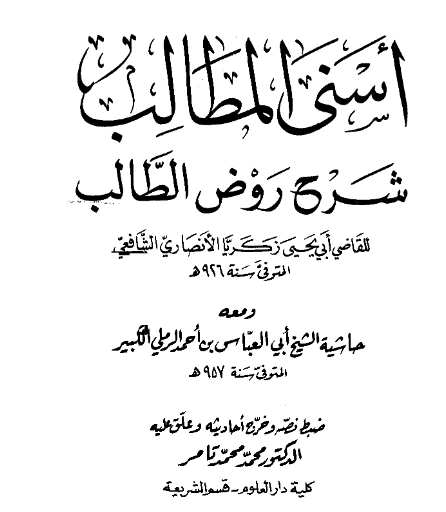 أسنى المطالب
شرح روض الطالب
للقاضي أبي يحيى زكريا الأنصاري الشافعي
المتوفى سنة ٩٢٦ ه
ومعه
حاشية الشيخ أبي العباس بن أحمد الرملي الكبير
المتوفى سنة ٩٥٧ ه
ضبط نصه وخرج أحاديثه وعلق عليه
الدكتور محمد محمد تامر
كلية دار العلوم - قسم الشريعة